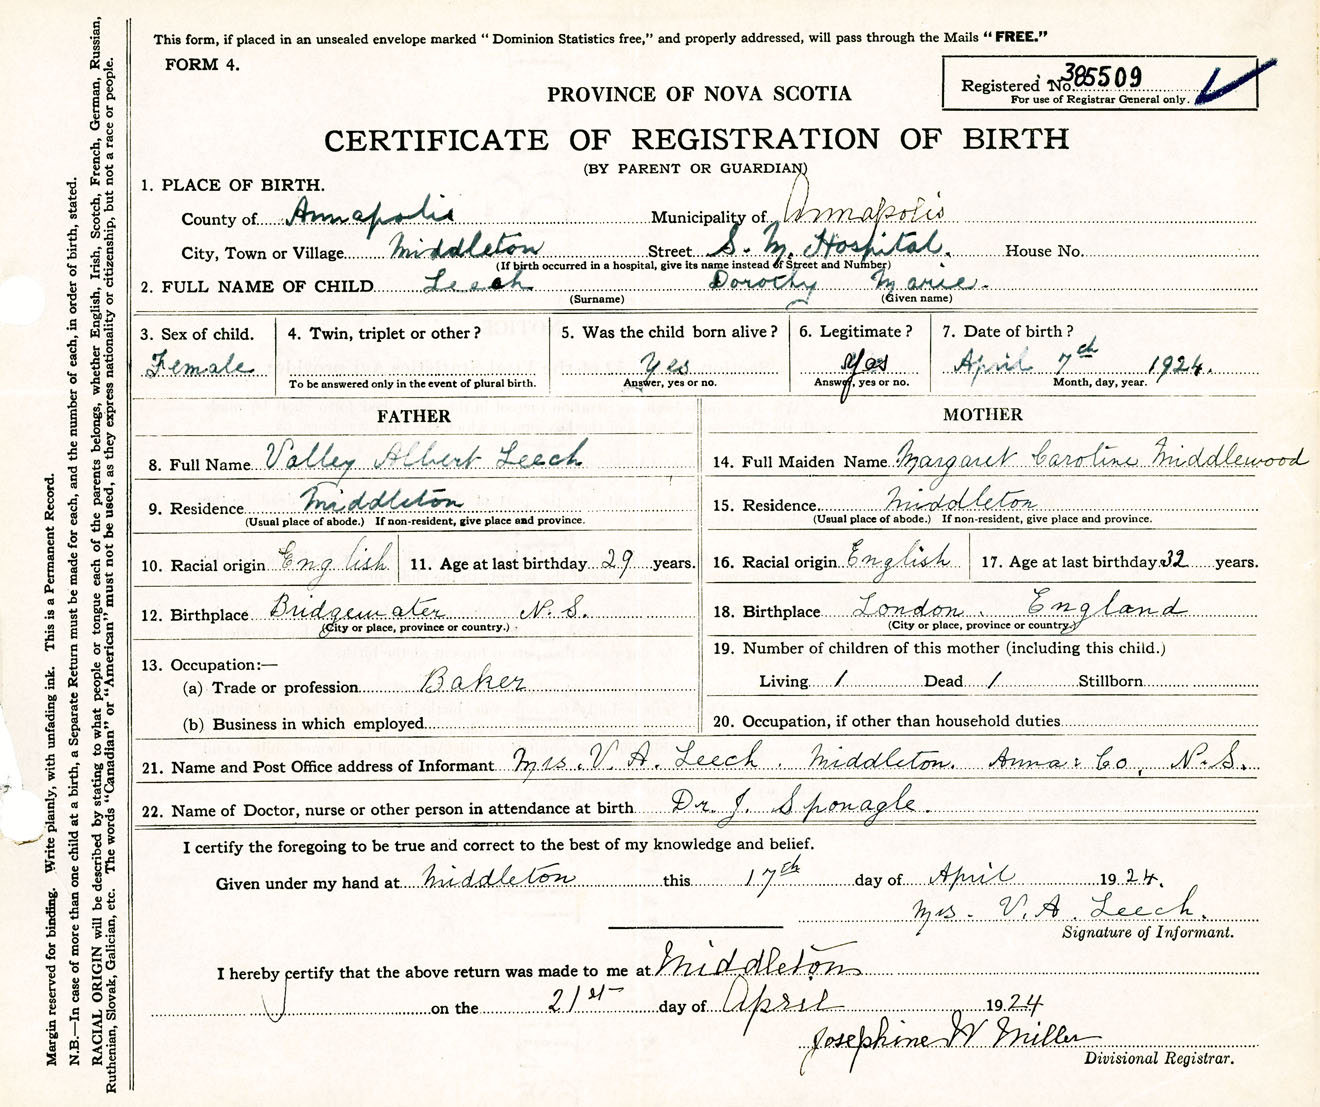 This form, if placed in an unsealed envelope marked "Dominion Statistics free," and properly addressed, will pass through the Mails "FREE."
FORM 4.
Registered No. 385509
For use of Registrar General only.
PROVINCE OF NOVA SCOTIA
CERTIFICATE OF REGISTRATION OF BIRTH
(BY PARENT OR GUARDIAN)
1. PLACE OF BIRTH.
County of Annapolis Municipality of Annapolis
City, Town or Village Middleton Street S. M. Hospital. House No.
(If birth occurred in a hospital, give its name instead of Street and Number)
2. FULL NAME OF CHILD Leech Dorothy Marie.
(Surname) (Given name)
3. Sex of child. 4. Twin, triplet or other? 5. Was the child born alive? 6. Legitimate? 7. Date of birth?
Female Yes Yes April 7th 1924.
To be answered only in the event of plural birth. Answer, yes or no. Answer, yes or no. Month, day, year.
FATHER MOTHER
8. Full Name Valley Albert Leech 14. Full Maiden Name Margaret Caroline Middlewood
9. Residence Middleton 15. Residence Middleton
(Usual place of abode.) If non-resident, give place and province. (Usual place of abode.) If non-resident, give place and province.
10. Racial origin English 11. Age at last birthday 29 years. 16. Racial origin English 17. Age at last birthday 32 years.
12. Birthplace Bridgewater N.S. 18. Birthplace London. England
(City or place, province or country.) (City or place, province or country.)
13. Occupation:— 19. Number of children of this mother (including this child.)
(a) Trade or profession Baker Living 1 Dead 1 Stillborn
(b) Business in which employed 20. Occupation, if other than household duties
21. Name and Post Office address of Informant Mrs. V. A. Leech. Middleton. Anna: Co, N.S.
22. Name of Doctor, nurse or other person in attendance at birth Dr. J. Sponagle.
I certify the foregoing to be true and correct to the best of my knowledge and belief.
Given under my hand at Middleton this 17th day of April 1924.
Mrs. V. A. Leech.
Signature of Informant.
I hereby certify that the above return was made to me at Middleton
on the 21st day of April 1924
Josephine W Miller
Divisional Registrar.
Margin reserved for binding. Write plainly, with unfading ink. This is a Permanent Record.
N.B.—In case of more than one child at a birth, a Separate Return must be made for each, and the number of each, in order of birth, stated.
RACIAL ORIGIN will be described by stating to what people or tongue each of the parents belongs, whether English, Irish, Scotch, French, German, Russian,
Ruthenian, Slovak, Galician, etc. The words "Canadian" or "American" must not be used, as they express nationality or citizenship, but not a race or people.